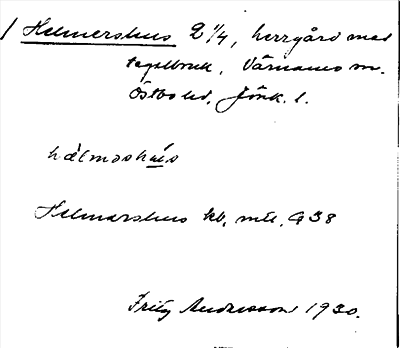 / Helmershus 2 1/4, herrgård med
tegelbruk, Värnamo sn.
Östbo hd, Jönk. l.
hælmashús
Helmarshus kb, mtl, G38
Fritz Andersson 1930.